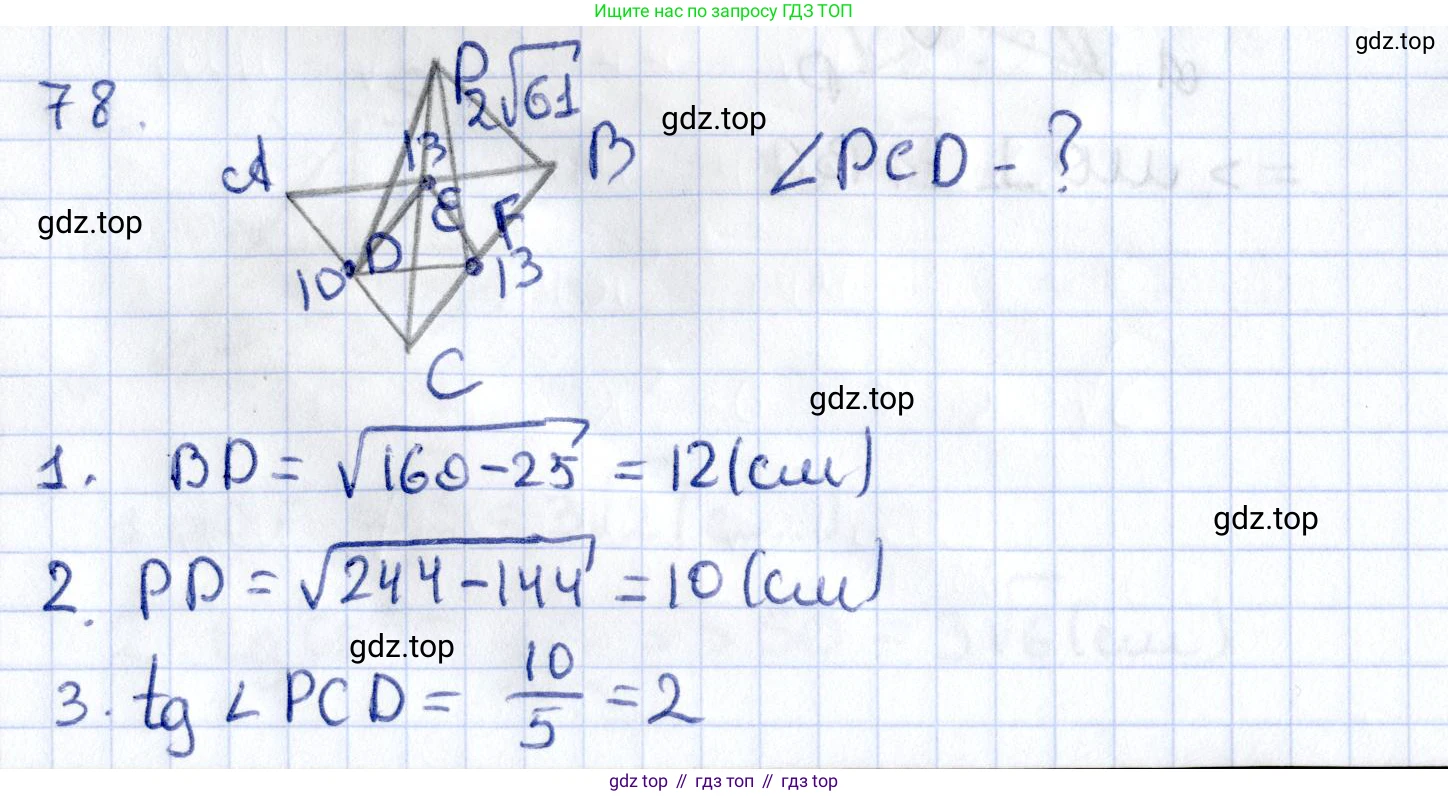 Ищите нас по запросу ГДЗ ТОП
gdz.top
78.
P
2√61
gdz.top
13
A
B
∠PCD - ?
gdz.top
E
F
D
10
13
C
gdz.top
1. BD = √160-25 = 12(см)
gdz.top
2. PD = √244-144 = 10(см)
gdz.top
3. tg ∠PCD = 10/5 = 2
gdz top // гдз топ // гдз top